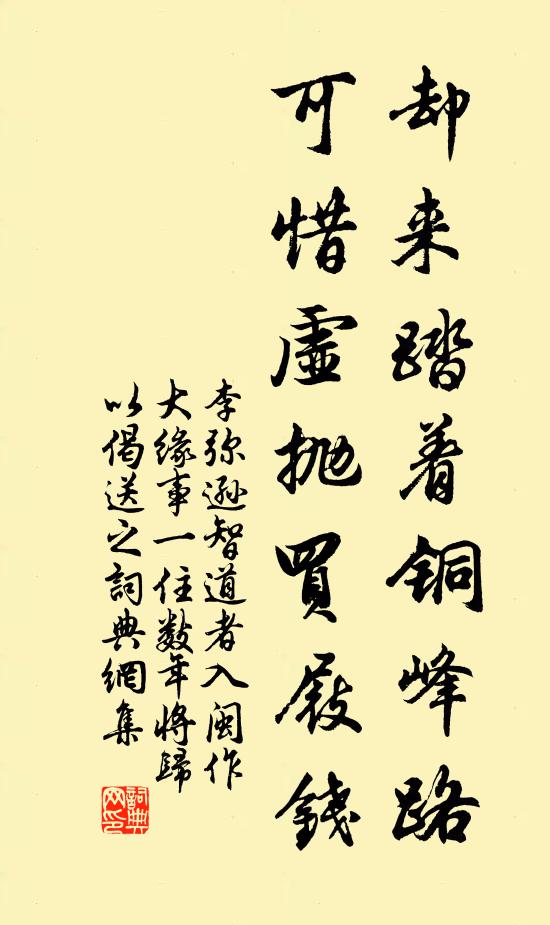 却来踏着銅峰路
可惜虛抛買屐錢
李弥遜智道者入闽作
大缘事一住数年将歸
以偈送之詞典網集
詞典网印